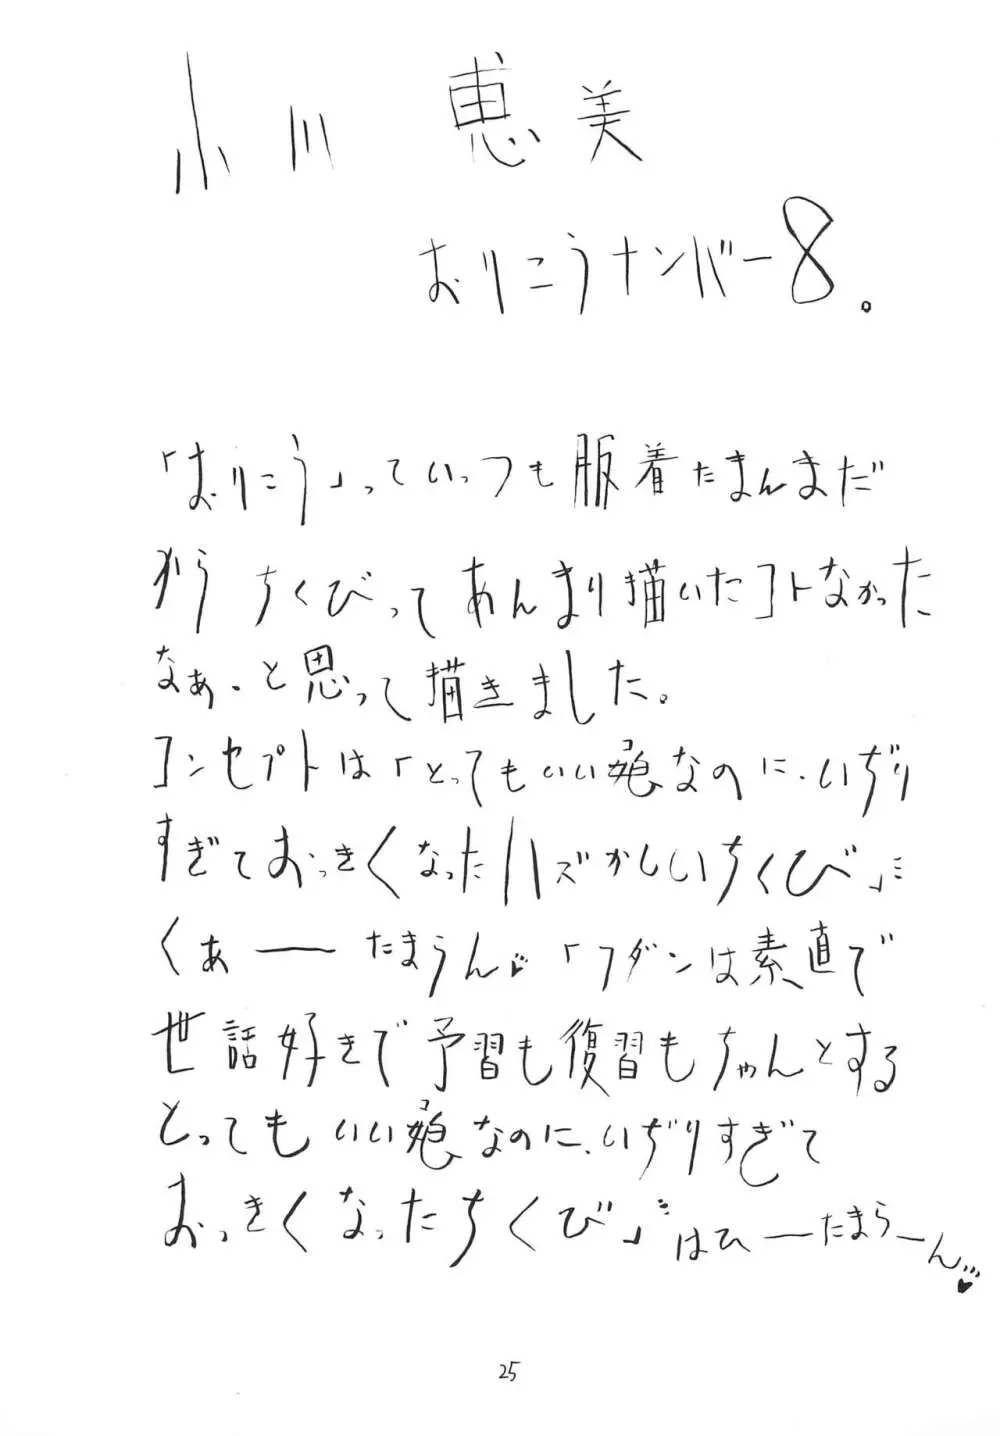 小川 恵美
おりこうナンバー8。
「おりこう」っていっつも服着たまんまだ
から ちくびってあんまり描いたコトなかった
なぁ・と思って描きました。
コンセプトは「とってもいい娘なのに、いぢり
コ
すぎておっきくなったハズかしいちくび」
くぁーたまらん♥「フダンは素直で
世話好きで予習も復習もちゃんとする
とってもいい娘なのに、いぢりすぎて
コ
おっきくなったちくび」はひーたまらーん♥
25